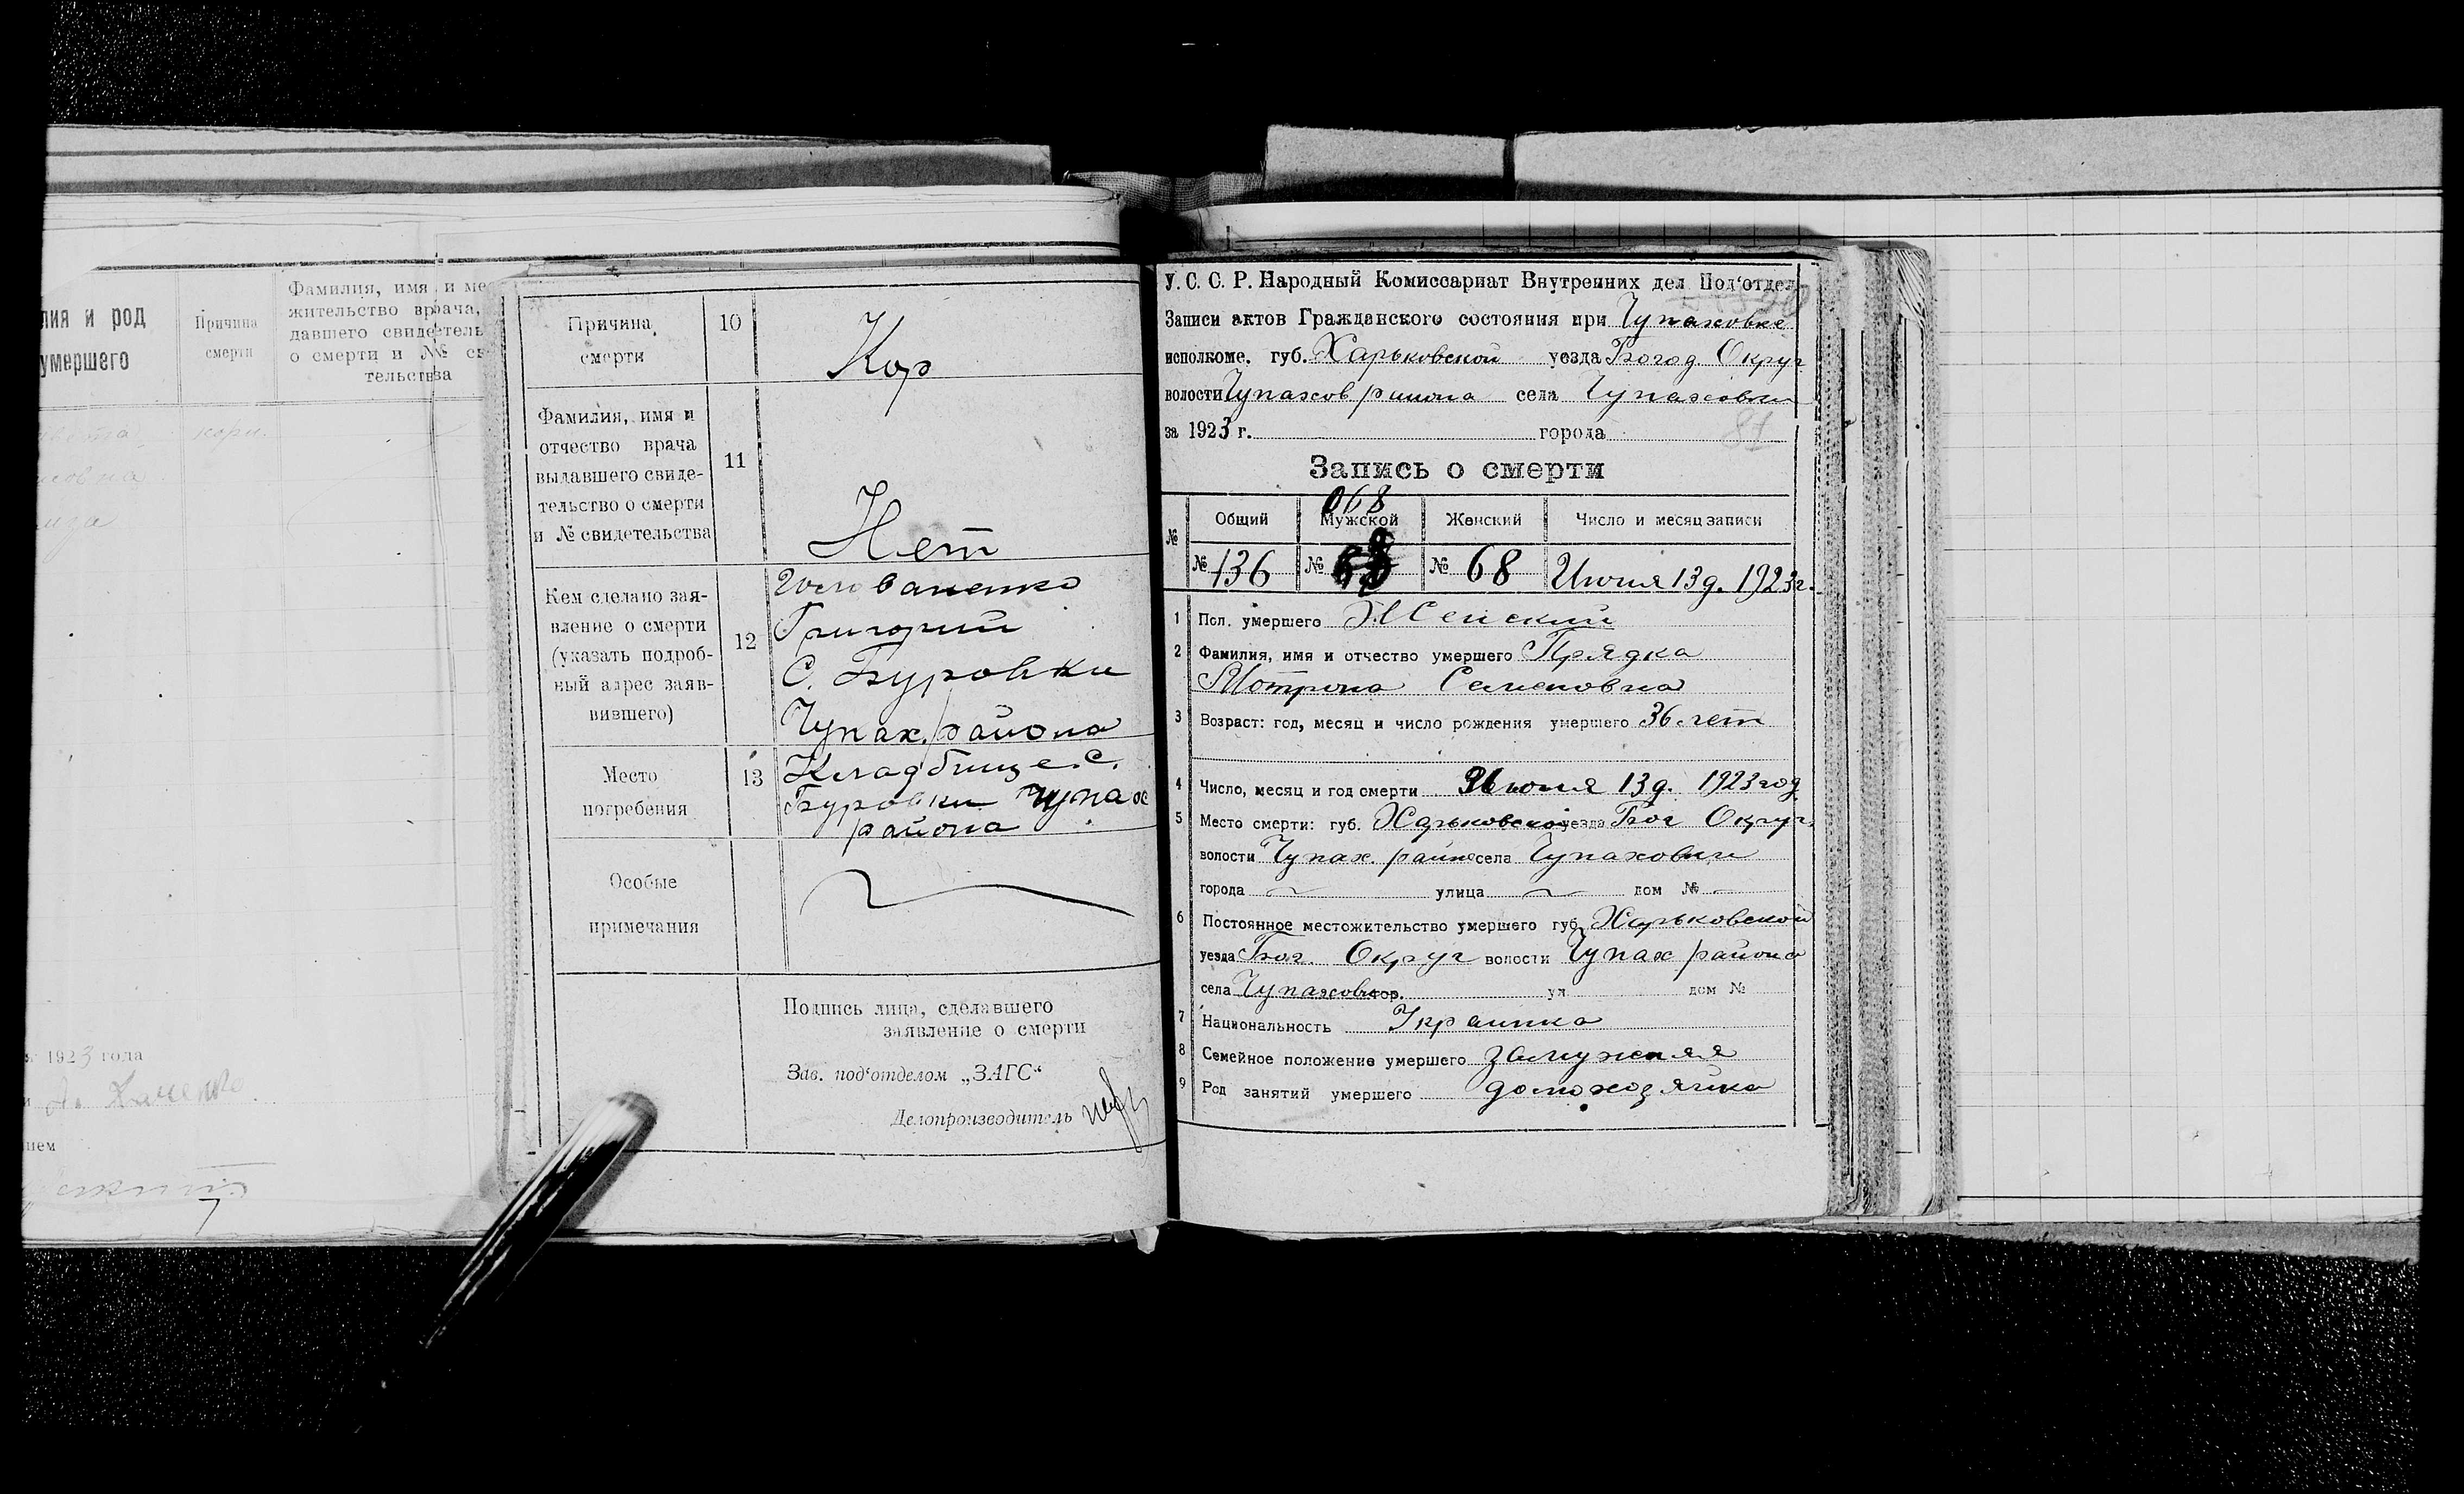 лия и род
умершего
Причина
смерти
Фамилия, имя и ме
жительство врача,
давшего свидетель
о смерти и №
тельства
корн.
1923 года
нем
Причина
смерти
10
Кор
Фамилия, имя и
отчество врача
выдавшего свиде-
тельство о смерти
и № свидетельства
11
Нет
Кем сделано зая-
вление о смерти
(указать подроб-
ный адрес заяв-
вившего)
12
Григорий
С. Буровки
Чупах. района
Место
погребения
13
Кладбище с.
Буровки Чупах
района
Особые
примечания
Подпись лица, сделавшего
заявление о смерти
Зав. под'отделом „ЗАГС“
Делопроизводитель
У. С. С. Р. Народный Комиссариат Внутренних дел Под'отдел
Записи актов Гражданского состояния при Чупаховке
исполкоме. губ. Харьковской уезда Богод. Округ
волости Чупахов района села Чупаховки
за 1923 г. города 81
Запись о смерти
068
№ Общий Мужской Женский Число и месяц записи
№ 136 № 68 № 68 Июня 13 д. 1923 г.
1 Пол. умершего Женский
2 Фамилия, имя и отчество умершего Прядка
Мотрона Семеновна
3 Возраст: год, месяц и число рождения умершего 36 лет
4 Число, месяц и год смерти Июня 13 д. 1923 год
5 Место смерти: губ. Харьковской уезда Бог Округ.
волости Чупах. района села Чупаховки
города улица дом №
6 Постоянное местожительство умершего губ. Харьковской
уезда Бог. Округ волости Чупах района
села Чупаховки гор. ул дом №
7 Национальность Украинка
8 Семейное положение умершего замужняя
9 Род занятий умершего домохозяйка